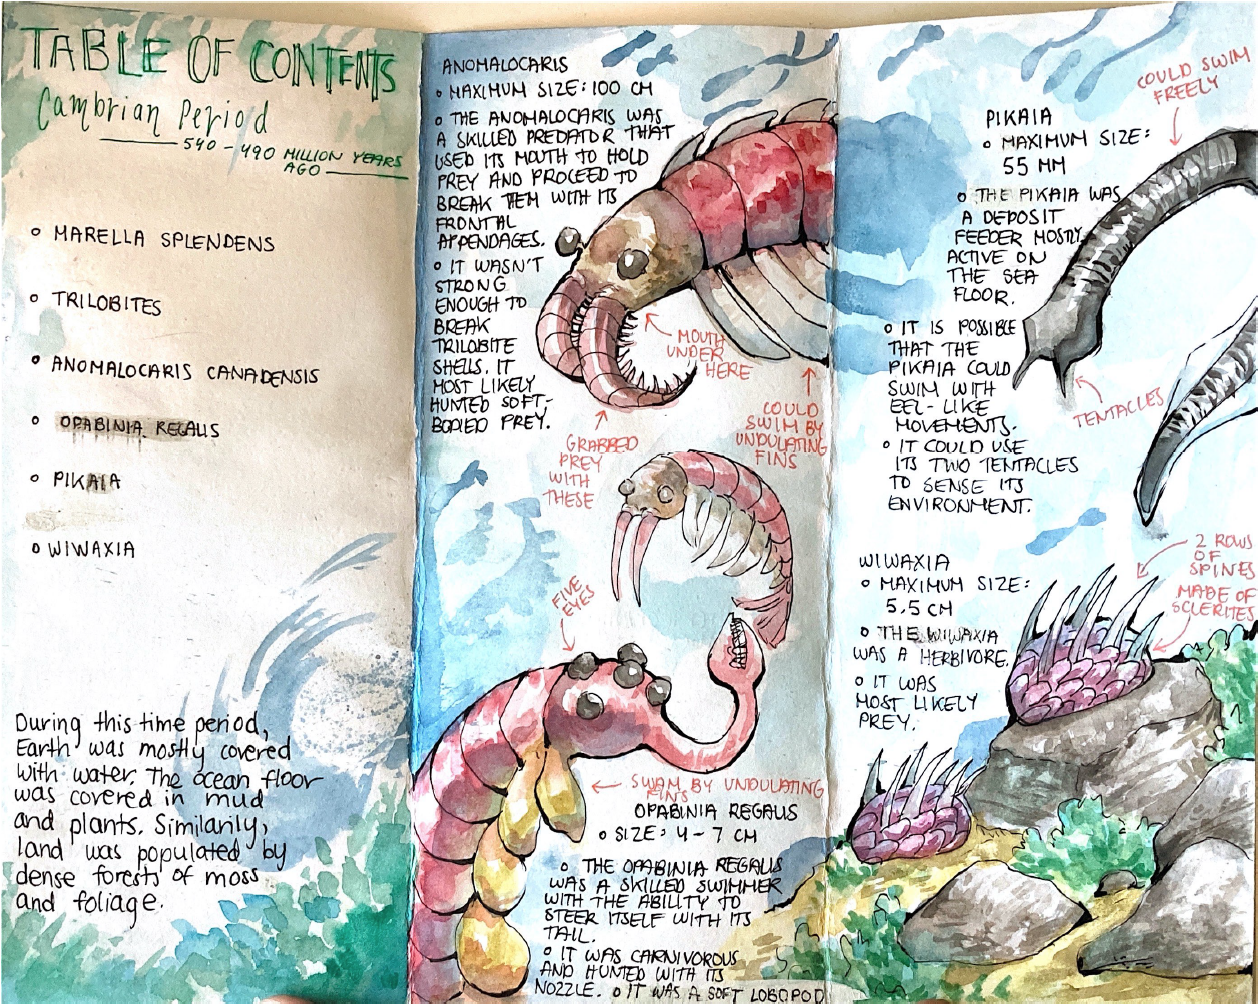 TABLE OF CONTENTS
Cambrian Period
540 - 490 MILLION YEARS
AGO
• MARELLA SPLENDENS
• TRILOBITES
• ANOMALOCARIS CANADENSIS
• OPABINIA REGALIS
• PIKAIA
• WIWAXIA
During this time period,
Earth was mostly covered
with water. The ocean floor
was covered in mud
and plants. Similarily,
land was populated by
dense forests of moss
and foliage.
ANOMALOCARIS
• MAXIMUM SIZE: 100 CM
• THE ANOMALOCARIS WAS
A SKILLED PREDATOR THAT
USED ITS MOUTH TO HOLD
PREY AND PROCEED TO
BREAK THEM WITH ITS
FRONTAL
APPENDAGES.
• IT WASN'T
STRONG
ENOUGH TO
BREAK
TRILOBITE
SHELLS. IT
MOST LIKELY
HUNTED SOFT-
BODIED PREY.
MOUTH
UNDER
HERE
GRABBED
PREY
WITH
THESE
COULD
SWIM BY
UNDULATING
FINS
FIVE
EYES
SWAM BY UNDULATING
FINS
OPABINIA REGALIS
• SIZE: 4 - 7 CM
• THE OPABINIA REGALIS
WAS A SKILLED SWIMMER
WITH THE ABILITY TO
STEER ITSELF WITH ITS
TAIL.
• IT WAS CARNIVOROUS
AND HUNTED WITH ITS
NOZZLE. • IT WAS A SOFT LOBOPOD
PIKAIA
• MAXIMUM SIZE:
55 MM
• THE PIKAIA WAS
A DEPOSIT
FEEDER MOSTLY
ACTIVE ON
THE SEA
FLOOR.
• IT IS POSSIBLE
THAT THE
PIKAIA COULD
SWIM WITH
EEL-LIKE
MOVEMENTS.
• IT COULD USE
ITS TWO TENTACLES
TO SENSE ITS
ENVIRONMENT.
COULD SWIM
FREELY
TENTACLES
WIWAXIA
• MAXIMUM SIZE:
5,5 CM
• THE WIWAXIA
WAS A HERBIVORE.
• IT WAS
MOST LIKELY
PREY.
2 ROWS
OF
SPINES
MADE OF
SCLERITES